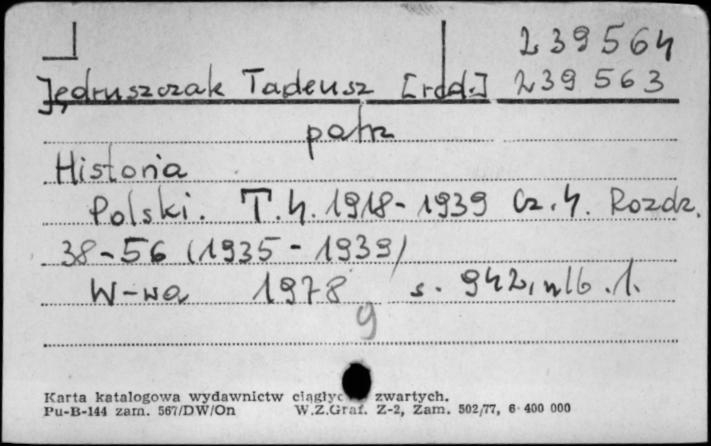 239564
Jędruszczak Tadeusz [red.] 239563
patrz
Historia
Polski. T.4. 1918-1939 Cz.4. Rozdz.
38-56 (1935-1939)
W-wa 1978 s. 942, nlb.1.
9
Karta katalogowa wydawnictw zwartych.
Pu-B-144 zam. 567/DW/On W.Z.Graf. Z-2, Zam. 502/77, 6 400 000